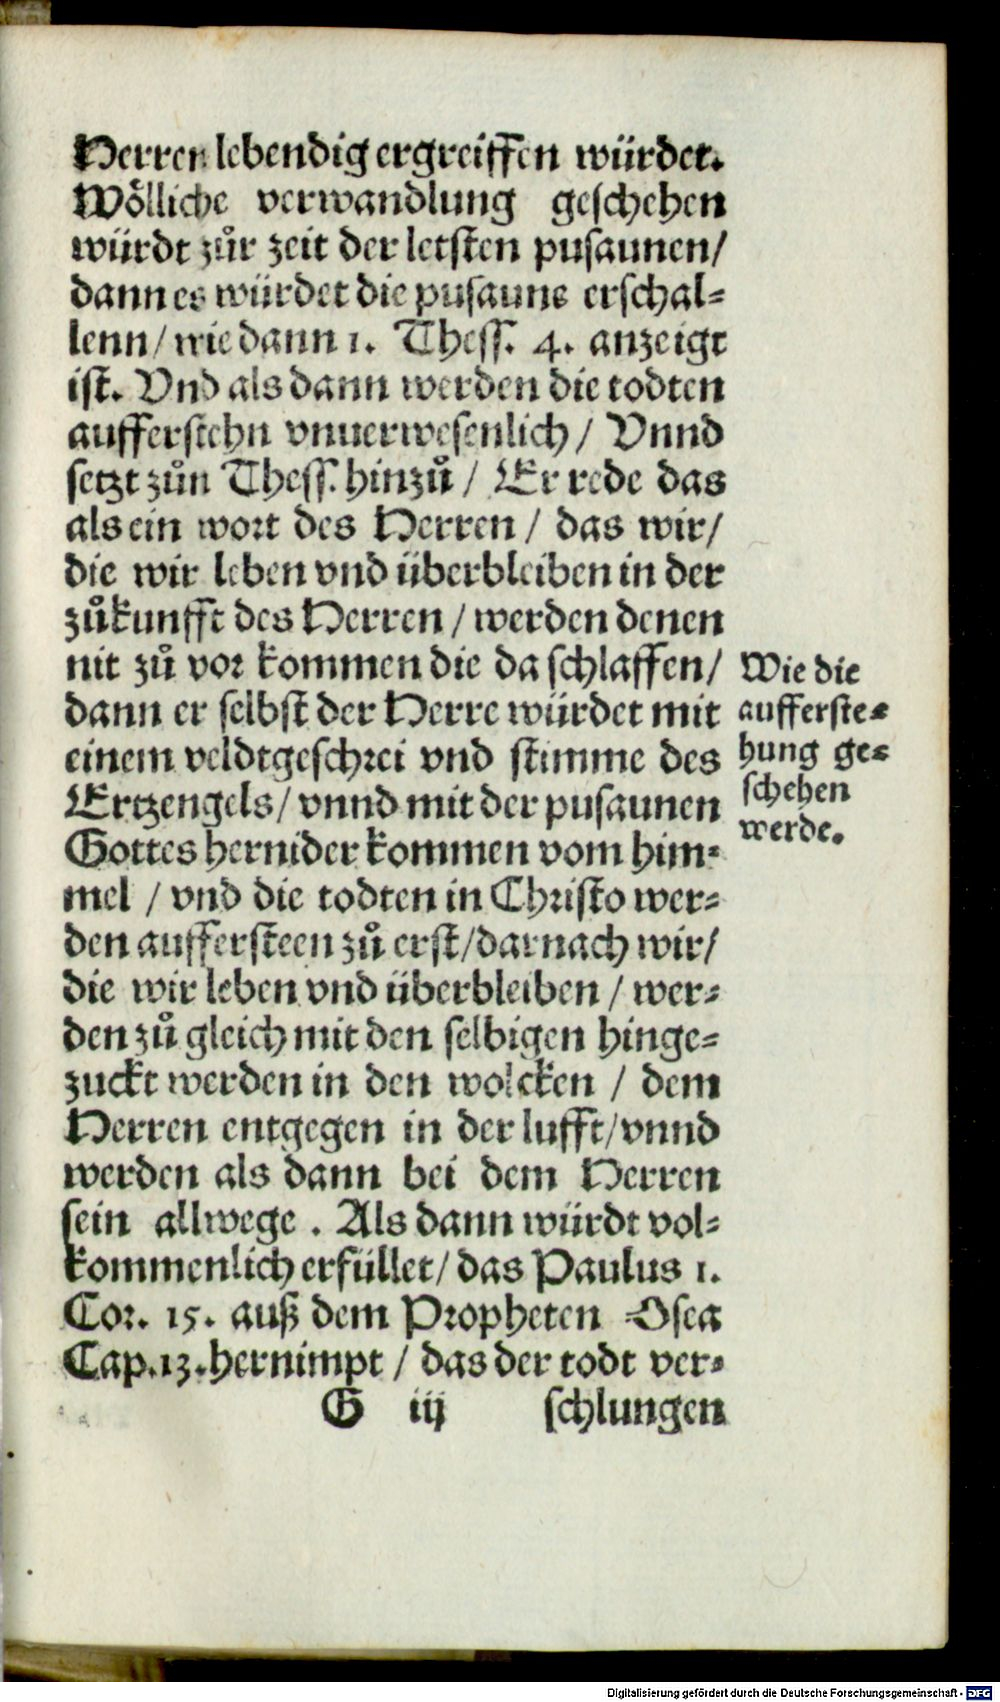 Herren lebendig ergreiffen würdet.
Woͤlliche verwandlung geschehen
würdt zuͦr zeit der letsten pusaunen/
dann es würdet die pusaune erschal-
lenn/ wie dann 1. Thess. 4. anzeigt
ist. Vnd als dann werden die todten
aufferstehn vnuerwesenlich/ Vnnd
setzt zuͦn Thess. hinzuͦ/ Er rede das
als ein wort des Herren/ das wir/
die wir leben vnd überbleiben in der
zuͦkunfft des Herren/ werden denen
nit zuͦ vor kommen die da schlaffen/
dann er selbst der Herre würdet mit
einem veldtgeschrei vnd stimme des
Ertzengels/ vnnd mit der pusaunen
Gottes hernider kommen vom him-
mel/ vnd die todten in Christo wer-
den aufferssteen zuͦ erst/ darnach wir/
die wir leben vnd überbleiben/ wer-
den zuͦ gleich mit den selbigen hinge-
zuckt werden in den wolcken/ dem
Herren entgegen in der lufft/ vnnd
werden als dann bei dem Herren
sein allwege. Als dann würdt vol-
kommenlich erfüllet/ das Paulus 1.
Cor. 15. auß dem Propheten Osea
Cap. 13. hernimpt/ das der todt ver-
G iij schlungen
Wie die
aufferste-
hung ge-
schehen
werde.
Digitalisierung gefördert durch die Deutsche Forschungsgemeinschaft - DFG